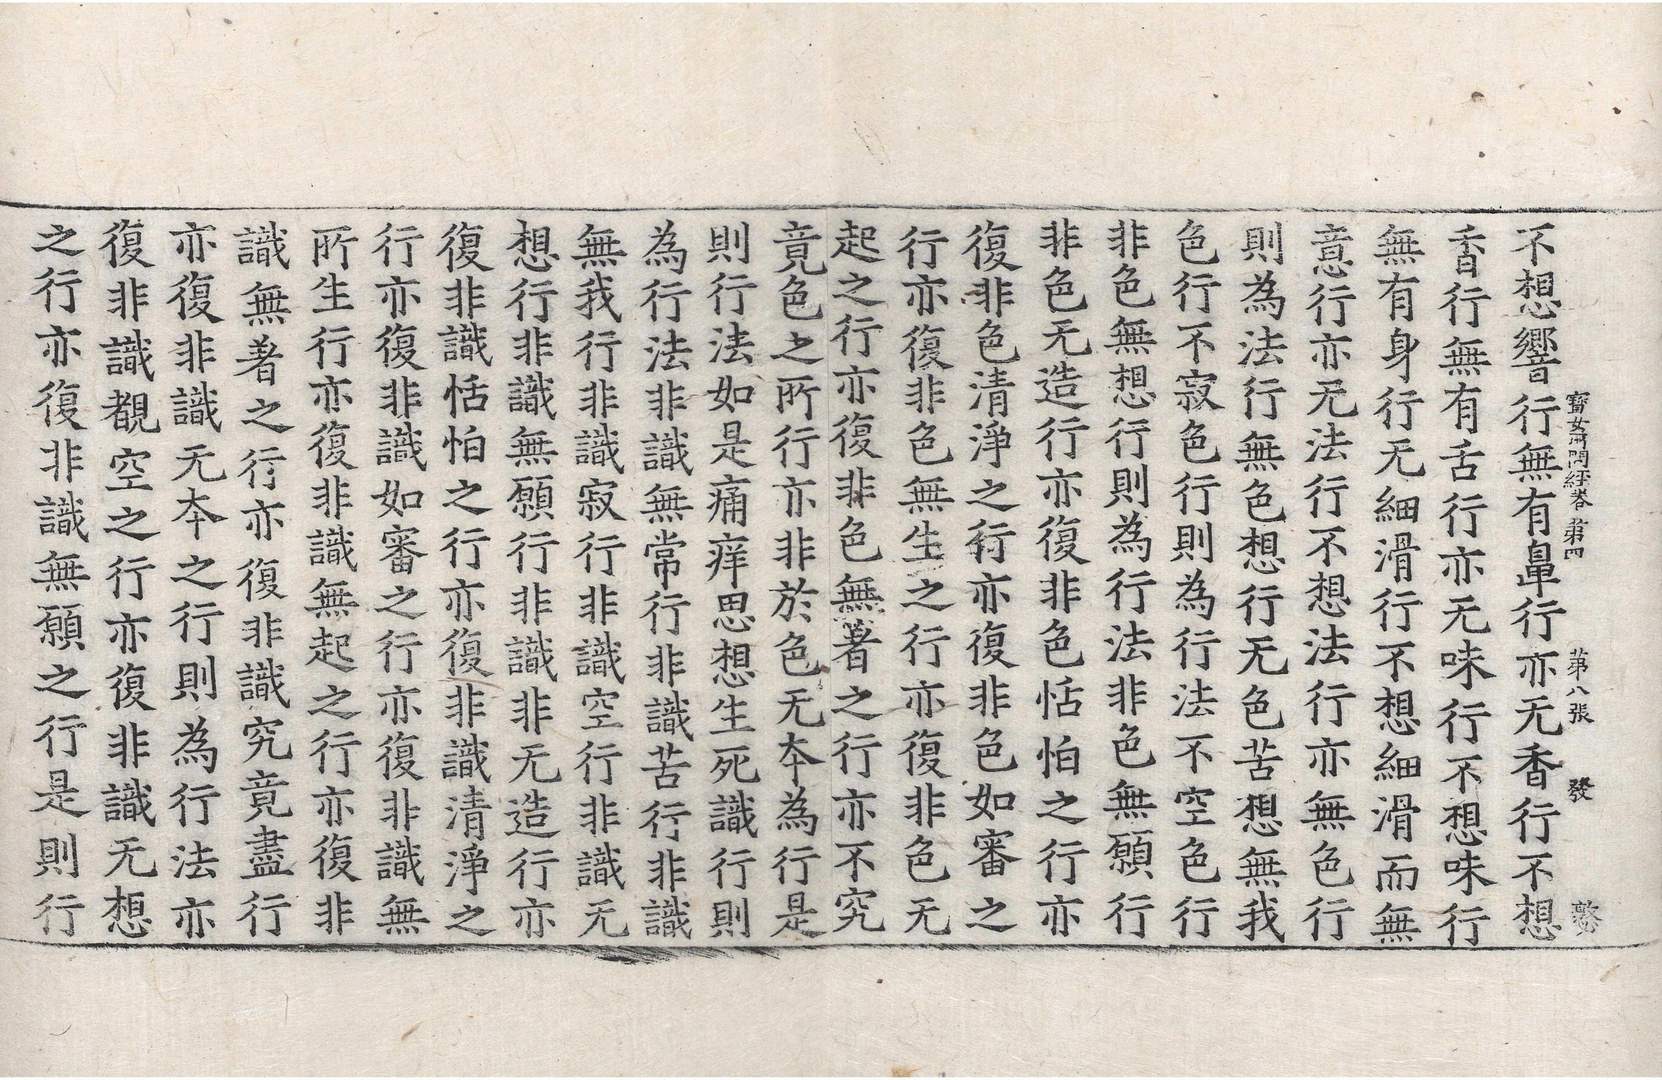 寶女所問經卷第四 第八張 發
不想響行無有鼻行亦无香行不想
香行無有舌行亦无味行不想味行
無有身行无細滑行不想細滑而無
意行亦无法行不想法行亦無色行
則為法行無色想行无色苦想無我
色行不寂色行則為行法不空色行
非色無想行則為行法非色無願行
非色无造行亦復非色恬怕之行亦
復非色清淨之行亦復非色如審之
行亦復非色無生之行亦復非色无
起之行亦復非色無著之行亦不究
竟色之所行亦非於色无夲為行是
則行法如是痛痒思想生死識行則
為行法非識無常行非識苦行非識
無我行非識寂行非識空行非識无
想行非識無願行非識非无造行亦
復非識恬怕之行亦復非識清淨之
行亦復非識如審之行亦復非識無
所生行亦復非識無起之行亦復非
識無著之行亦復非識究竟盡行
亦復非識无夲之行則為行法亦
復非識覩空之行亦復非識无想
之行亦復非識無願之行是則行